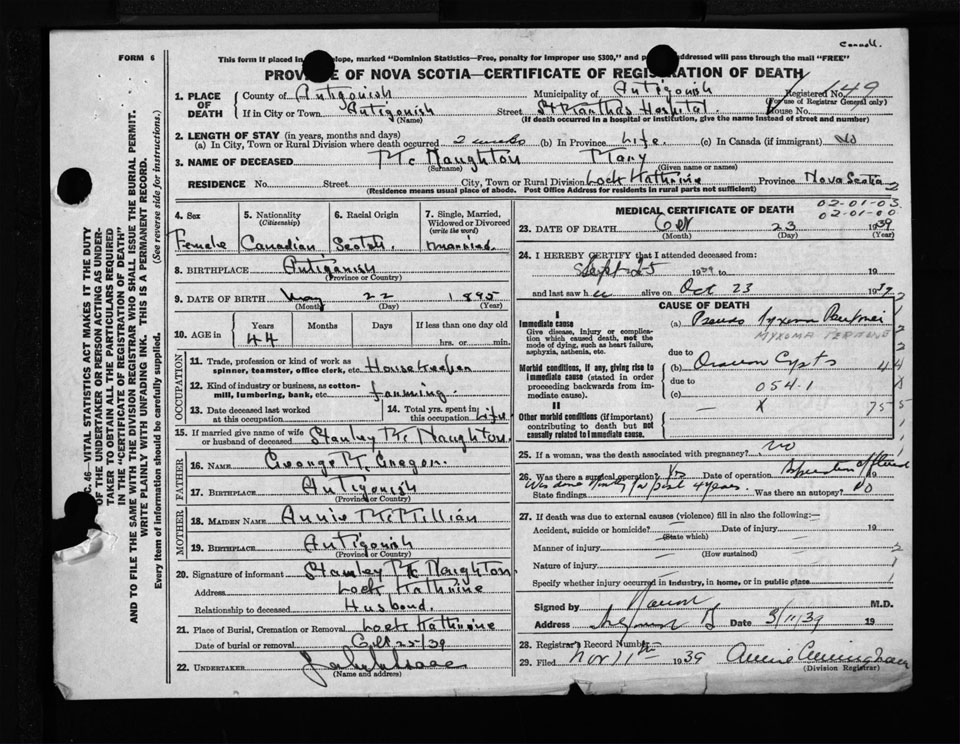 Connell.
FORM 6
This form if placed in envelope, marked "Dominion Statistics—Free, penalty for improper use $300," and addressed will pass through the mail "FREE"
PROVINCE OF NOVA SCOTIA—CERTIFICATE OF REGISTRATION OF DEATH
1. PLACE OF DEATH
County of Antigonish Municipality of Antigonish Registered No. 49
(For use of Registrar General only)
If in City or Town Antigonish Street St Marthas Hospital House No.
(Name) (If death occurred in a hospital or institution, give the name instead of street and number)
2. LENGTH OF STAY (in years, months and days)
(a) In City, Town or Rural Division where death occurred 2 weeks (b) In Province Life. (c) In Canada (if immigrant)
3. NAME OF DECEASED Mc Naughton Mary
(Surname) (Given name or names)
RESIDENCE No. Street City, Town or Rural Division Loch Kathrine Province Nova Scotia
(Residence means usual place of abode. Post Office Address for residents in rural parts not sufficient)
4. Sex
Female
5. Nationality
(Citizenship)
Canadian
6. Racial Origin
Scotch.
7. Single, Married, Widowed or Divorced
(write the word)
Married.
8. BIRTHPLACE Antigonish
(Province or Country)
9. DATE OF BIRTH May 22 1895
(Month) (Day) (Year)
10. AGE in Years Months Days If less than one day old
44 hrs. or min.
OCCUPATION
11. Trade, profession or kind of work as
spinner, teamster, office clerk, etc. Housekeeper
12. Kind of industry or business, as cotton-
mill, lumbering, bank, etc. farming.
13. Date deceased last worked
at this occupation
14. Total yrs. spent in
this occupation Life
15. If married give name of wife
or husband of deceased Stanley Mc Naughton.
FATHER
16. NAME George Mc Gregor.
17. BIRTHPLACE Antigonish
(Province or Country)
MOTHER
18. MAIDEN NAME Annie McMillian
19. BIRTHPLACE Antigonish
(Province or Country)
20. Signature of informant Stanley Mc Naughton.
Address Loch Kathrine
Relationship to deceased Husband.
21. Place of Burial, Cremation or Removal Loch Kathrine
Date of burial or removal Oct 25/39
22. UNDERTAKER
(Name and address)
MEDICAL CERTIFICATE OF DEATH
02-01-03
02-01-00
23. DATE OF DEATH Oct 23 1939
(Month) (Day) (Year)
24. I HEREBY CERTIFY that I attended deceased from:
Sept 25 1939 to 19
and last saw her alive on Oct 23 1939
CAUSE OF DEATH
I
Immediate cause
Give disease, injury or complication which caused death, not the mode of dying, such as heart failure, asphyxia, asthenia, etc.
(a) Pseudo
MYXOMA
due to
Morbid conditions, if any, giving rise to immediate cause (stated in order proceeding backwards from immediate cause).
(b) Ovarian Cysts
due to 054.1
(c)
II
Other morbid conditions (if important) contributing to death but not causally related to immediate cause.
— X
25. If a woman, was the death associated with pregnancy? no
26. Was there a surgical operation? Yes Date of operation 19
Was done for past 4 years.
State findings Was there an autopsy? no
27. If death was due to external causes (violence) fill in also the following:—
Accident, suicide or homicide? Date of injury 19
(State which)
Manner of injury
(How sustained)
Nature of injury
Specify whether injury occurred in industry, in home, or in public place
Signed by M.D.
Address Date 3/11/39 19
28. Registrar's Record Number
29. Filed Nov 11th 1939 Annie Cunningham
(Division Registrar)
SEC. 46—VITAL STATISTICS ACT MAKES IT THE DUTY
OF THE UNDERTAKER OR PERSON ACTING AS UNDER-
TAKER TO OBTAIN ALL THE PARTICULARS REQUIRED
IN THE "CERTIFICATE OF REGISTRATION OF DEATH"
AND TO FILE THE SAME WITH THE DIVISION REGISTRAR WHO SHALL ISSUE THE BURIAL PERMIT.
WRITE PLAINLY WITH UNFADING INK. THIS IS A PERMANENT RECORD.
Every item of information should be carefully supplied. (See reverse side for instructions.)